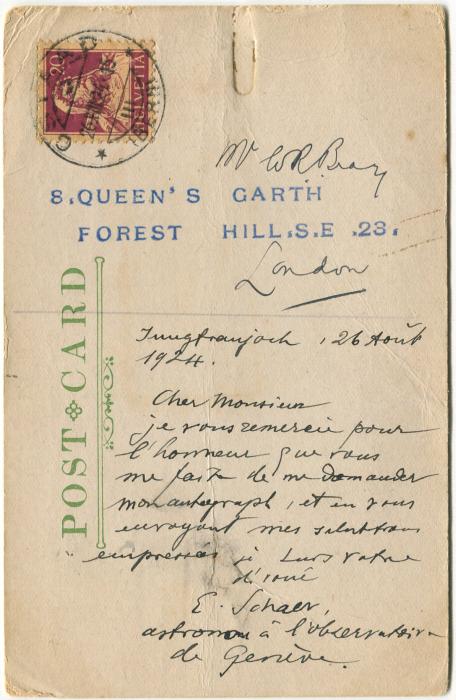 20
HELVETIA
Mr W R Bray
8, QUEEN'S GARTH
FOREST HILL, S.E .23.
London
POST CARD
Jungfraujoch, 26 Août
1924.
Cher Monsieur
je vous remercie pour
l'honneur que vous
me faite de me demander
mon autograph, et en vous
envoyant mes salutations
empressées je suis votre
dévoué
E. Schaer,
astronome à l'observatoire
de Genève.